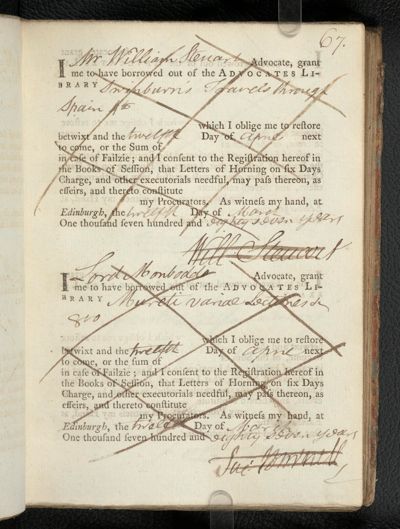 67.
I Mr. William Steuart Advocate, grant
me to have borrowed out of the ADVOCATES LI-
BRARY Swinburn's Travels through
Spain 4to
which I oblige me to reſtore
betwixt and the twelfth Day of April next
to come, or the Sum of
in caſe of Failzie; and I conſent to the Regiſtration hereof in
the Books of Seſſion, that Letters of Horning on ſix Days
Charge, and other executorials needful, may paſs thereon, as
effeirs, and thereto conſtitute
my Procurators. As witneſs my hand, at
Edinburgh, the twelfth Day of March
One thouſand ſeven hundred and eighty seven years
Will Steuart
I Lord Monboddo Advocate, grant
me to have borrowed out of the ADVOCATES LI-
BRARY Mureti variae Lectiones
8vo
which I oblige me to reſtore
betwixt and the twelfth Day of April next
to come, or the ſum of
in caſe of Failzie; and I conſent to the Regiſtration hereof in
the Books of Seſſion, that Letters of Horning on ſix Days
Charge, and other executorials needful, may paſs thereon, as
effeirs, and thereto conſtitute
my Procurators. As witneſs my hand, at
Edinburgh, the twelfth Day of March
One thouſand ſeven hundred and eighty seven years
Jas Burnett